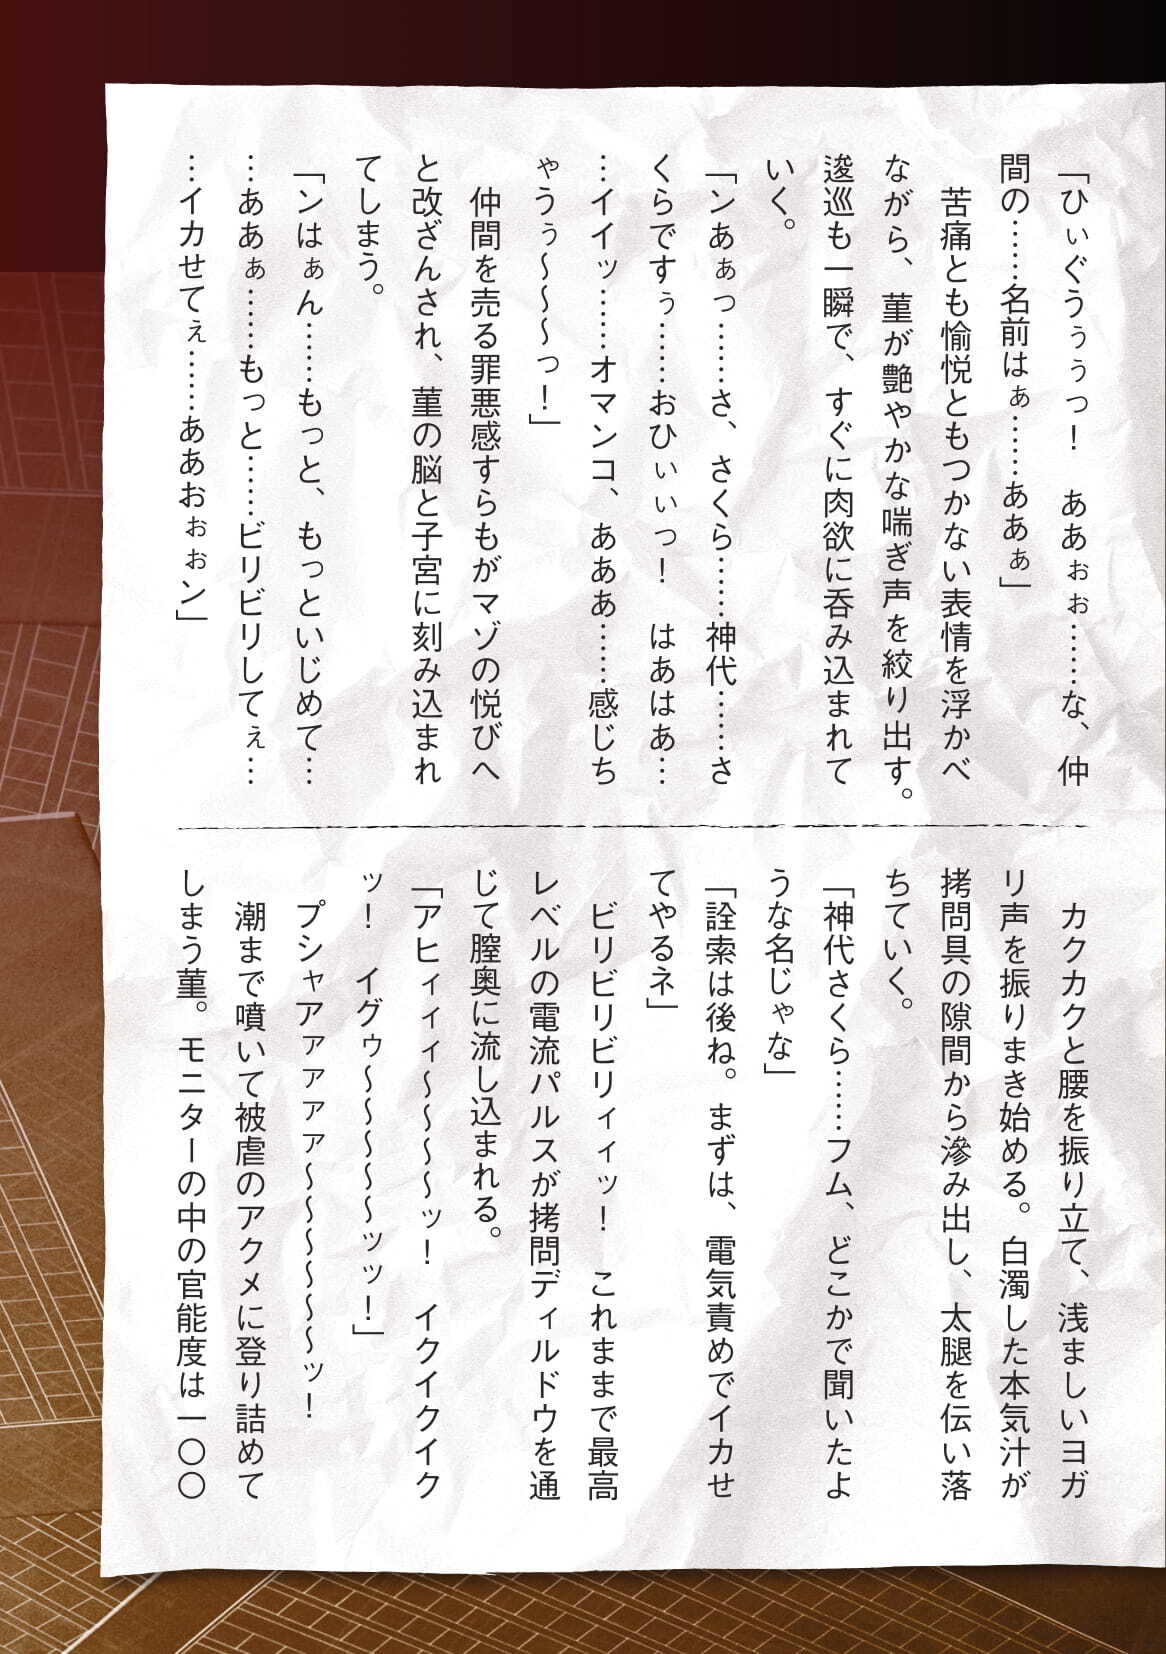 「ひぃぐうぅぅっ！　ああぉぉ……な、仲
間の……名前はぁ……ああぁ」
苦痛とも愉悦ともつかない表情を浮かべ
ながら、菫が艶やかな喘ぎ声を絞り出す。
逡巡も一瞬で、すぐに肉欲に呑み込まれて
いく。
「ンあぁっ……さ、さくら……神代……さ
くらですぅ……おひぃぃっ！　はあはあ…
…イイッ……オマンコ、あああ……感じち
ゃうぅ～～～っ！」
仲間を売る罪悪感すらもがマゾの悦びへ
と改ざんされ、菫の脳と子宮に刻み込まれ
てしまう。
「ンはぁん……もっと、もっといじめて…
…ああぁ……もっと……ビリビリしてぇ…
…イカせてぇ……ああおぉぉン」
カクカクと腰を振り立て、浅ましいヨガ
リ声を振りまき始める。白濁した本気汁が
拷問具の隙間から滲み出し、太腿を伝い落
ちていく。
「神代さくら……フム、どこかで聞いたよ
うな名じゃな」
「詮索は後ね。まずは、電気責めでイカせ
てやるネ」
ビリビリビリィィッ！　これままで最高
レベルの電流パルスが拷問ディルドウを通
じて膣奥に流し込まれる。
「アヒィィィ～～～～ッ！　イクイクイク
ッ！　イグゥ～～～～～ッッ！」
プシャアァァァァ～～～～～～ッ！
潮まで噴いて被虐のアクメに登り詰めて
しまう菫。モニターの中の官能度は一〇〇